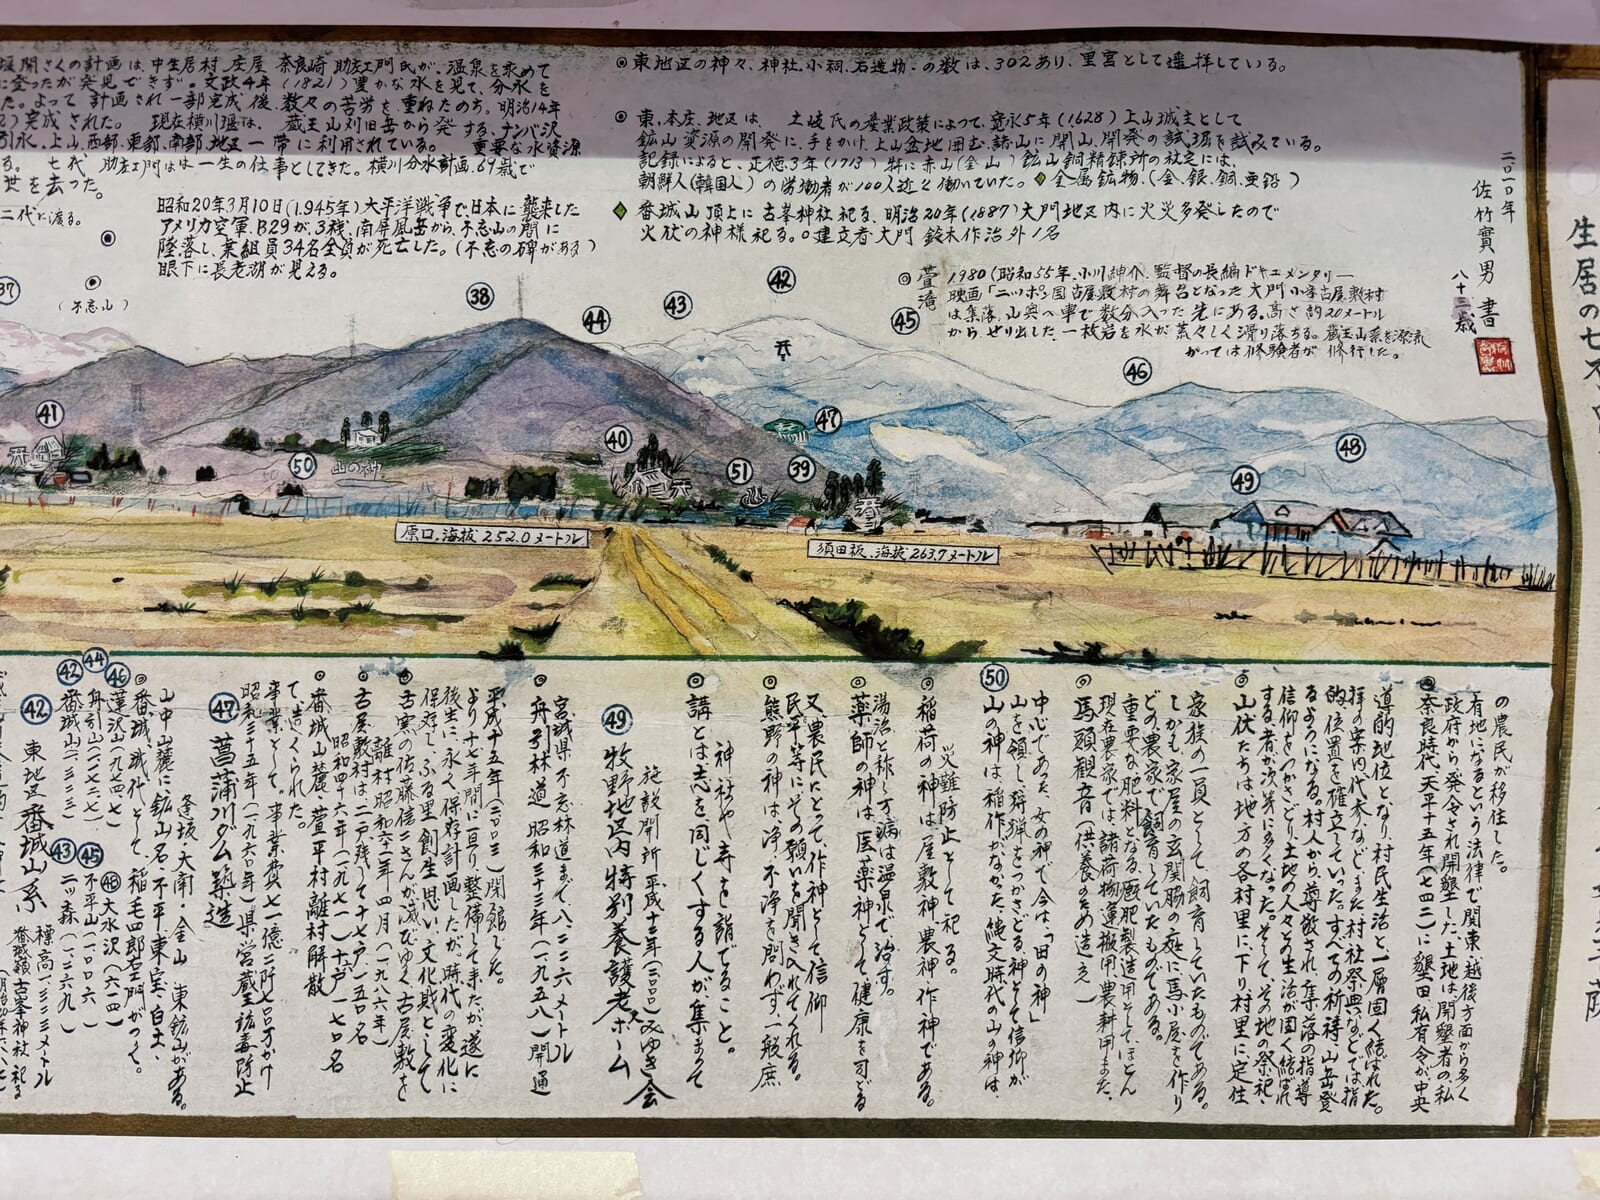 堰開さくの計画は、中生居村、庄屋 奈良崎 助左エ門氏が、温泉を求めて
に登ったが発見できず。文政4年(1821)豊かな水を見て、分水を
た。よって 計画され一部完成後、数々の苦労を重ねたのち。明治14年
2)完成された。 現在横川堰は、蔵王山刈田岳から発する、ナンバ沢
引水、上山、西部、東部、南部、地区一帯に利用されている。 重要な水資源
る。 七代 助左エ門はは一生の仕事としてきた。横川分水計画、69歳で
世を去った。
二代に渡る。
昭和20年3月10日(1.945年)大平洋戦争で、日本に襲来した
アメリカ空軍、B29が、3機、南屏風岳から、不忘山の間に
墜落し、乗組員34名全員が死亡した。(不忘の碑がある)
眼下に長老湖が見える。
◎東地区の神々、神社、小祠、石造物、の数は、302あり、里宮として遥拝している。
◎東、本庄、地区は、 土岐氏の産業政策によって、寛永5年(1628)上山城主として
鉱山資源の開発に、手をかけ、上山盆地囲む、諸山に開山、開発の試掘を試みている。
記録によると、正徳.3年(1713)特に赤山(金山)鉱山銅精錬所の社宅には、
朝鮮人(韓国人)の労働者が100人近く働いていた。◆金属鉱物、(金、銀、銅、亜鉛)
◆番城山頂上に古峯神社祀る、明治20年(1887)大門地区内に火災多発したので
火伏の神様祀る。○建立者 大門 鈴木作治外1名
◎萱滝 1980(昭和55年、小川紳介、監督の長編ドキュメンタリー
映画「ニッポン国古屋敷村の舞台となった大門小字古屋敷村
は集落、山奥へ車で数分入った先にある。高さ約20メートル
から、せり出した、一枚岩を水が荒々しく滑り落ちる。蔵王山系を源流
かっては修験者が修行した。
二〇一〇年
佐竹實男 書
八十三歳
生居の七不
37
(不忘山)
38
44
43
42
45
46
41
50
山の神
40
51
39
47
48
49
原口.海抜252.0メートル
須田板.海抜263.7メートル
の農民が移住した。
有地になるという法律で関東、越後方面から多く
政府から発令され開墾した土地は開墾者の、私
◎奈良時代、天平十五年(七四三)に墾田私有令が中央
導的地位となり、村民生活と一層固く結ばれた。
拝の案内代参など、また村社祭典などでは指
的位置を確立していった。すべての祈祷、山岳登
るようになる。村人から、尊敬され、集落の指導
信仰をつかさどり、土地の人々の生活が固く結ばれ
する者が次第に多くなった。そして、その地の祭祀、
◎山伏たちは地方の各村里に、下り、村里に定住
家族の一員として、飼育していたものである。
しかも家屋の玄関脇の庭に馬小屋を作り
どの農家で飼育していたものである。
重要な肥料となる、厩肥製造用そして、ほとん
現在農家では、諸荷物運搬用、農耕用また、
◎馬頭観音(供養のため造え)
中心であった、女の神で、今は、「田の神」
山を領し、狩猟をつかさどる神として信仰が
50 山の神は、稲作がなかった、縄文時代の山の神は、
災難防止として祀る。
◎稲荷の神は、屋敷神、農神、作神である。
湯治と称し万病は温泉で、治す。
◎薬師の神は、医薬神として、健康を司どる
又、農民にとって、作神として、信仰
民平等にその願いを聞き入れてくれる。
◎熊野の神は、浄、不浄を問わず、一般庶
神社や寺を詣でること。
◎講とは志を同じくする人が、集まって
施設開所 平成十二年(二〇〇〇)みゆき会
49 牧野地区内特別養護老ホーム
宮城県不忘林道まで、八、二二六メートル
◎舟引林道 昭和三十三年(一、九五八)開通
平成十五年(二〇〇三)閉館した。
より十七年間に亘り整備して来たが、遂に
後生に、永く、保存計画したが、時代の変化に
保存し、ふる里創生思い、文化財として
◎古窯の佐藤信二さんが滅びゆく、古屋敷を
離村 昭和六十一年四月(一九八六年)
◎古屋敷村は二戸残して十七戸、一五〇名
昭和四十六年(一九七一)十戸一七〇名
◎番城山麓、萱平村離村解散
て、造くられた。
事業として、事業費七一億二阡七百万かけ
昭和三十五年(一、九六〇年)県営蔵王鉱毒防止
47 菖蒲川ダム築造
逢坂、大南、金山 東鉱山がある。
山中山麓に鉱山名、不平、東宝、白土、
◎番城、城代として、稲毛四郎右エ門がって、
46 蓮沢山(九七四七) 48 大水沢(六一四)
44 舟引山(八七二七) 45 不平山(一、〇〇六)
42 番城山(一、三二三) 43 二ツ森(一、二六九)
42 東地区番城山系 標高一、三二三メートル
番城嶺古峯神社祀る